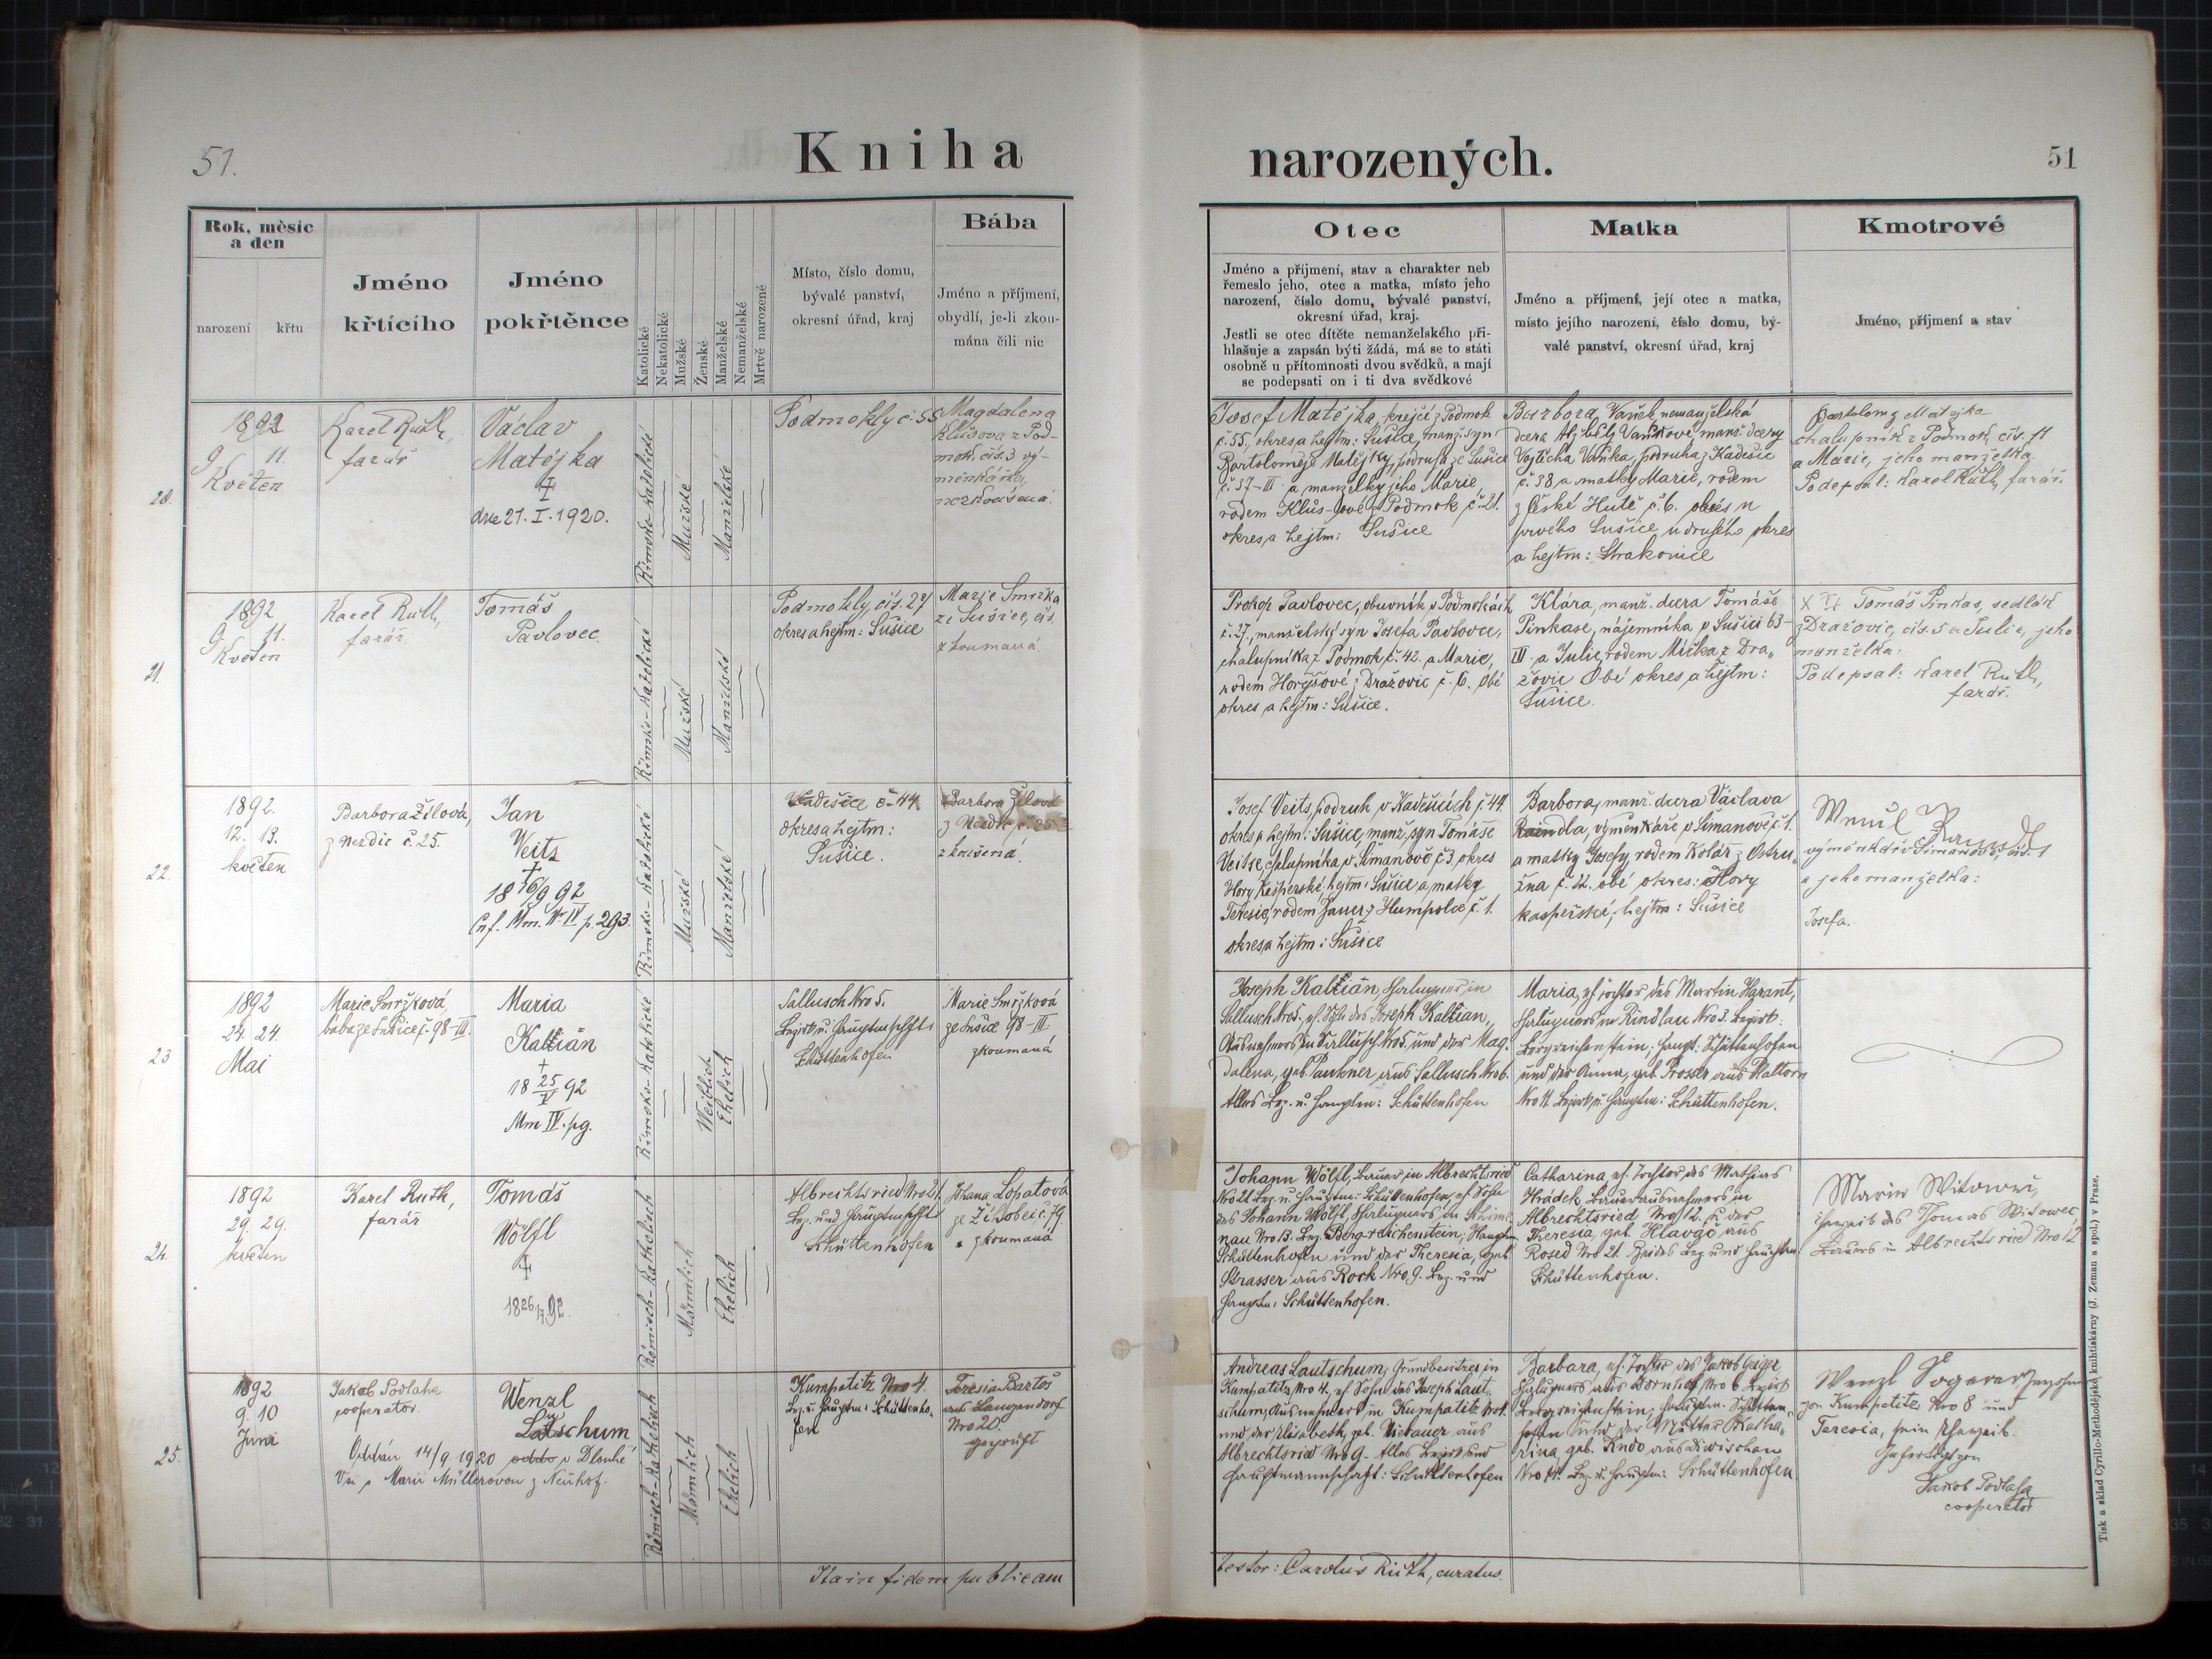 51.
Kniha
narozených.
51
Rok, měsíc
a den
narození
křtu
Jméno
křtícího
Jméno
pokřtěnce
Katolické
Nekatolické
Mužské
Ženské
Manželské
Nemanželské
Mrtvě narozené
Místo, číslo domu,
bývalé panství,
okresní úřad, kraj
Bába
Jméno a příjmení,
obydlí, je-li zkou-
mána čili nic
Otec
Jméno a příjmení, stav a charakter neb
řemeslo jeho, otec a matka, místo jeho
narození, číslo domu, bývalé panství,
okresní úřad, kraj.
Jestli se otec dítěte nemanželského při-
hlašuje a zapsán býti žádá, má se to státi
osobně u přítomnosti dvou svědků, a mají
se podepsati on i ti dva svědkové
Matka
Jméno a příjmení, její otec a matka,
místo jejího narození, číslo domu, bý-
valé panství, okresní úřad, kraj
Kmotrové
Jméno, příjmení a stav
20.
1892
9. 11.
Květen
Karel Ruth,
farář
Václav
Matějka
dne 21. I. 1920.
Římsko-katolické
Mužské
Manželské
Podmokly č. 55
Magdalena
Klůsova z Pod-
mok. čís. 3 vý-
měnkářka,
nezkoušená.
Josef Matějka, krejčí z Podmok
č. 55, okres a hejtm: Sušice, manž. syn
Bartoloměje Matějky, podruha ze Sušice
č. 37-III a manželky jeho Marie,
rodem Klůs-ové z Podmok č. 21.
okres a hejtm: Sušice
Barbora, Vaněk nemanželská
dcera Alžběty Vaňkové, manž. dcery
Vojtěcha Vaňka, podruha z Kadešic
č. 38 a matky Marie, rodem
z České Hutě č. 6. okres u
prvého Sušice, u druhého okres
a hejtm: Strakonice
Bartoloměj Matějka
chalupník z Podmok, čís. 11
a Marie, jeho manželka.
Podepsal: Karel Ruth, farář.
21.
1892
9. 11.
Květen
Karel Ruth,
farář.
Tomáš
Pavlovec.
Římsko-katolické
Mužské
Manželské
Podmokly, čís. 27
okres a hejtm: Sušice
Marie Smržka
ze Sušice, čís.
zkoumaná.
Prokop Pavlovec, obuvník v Podmoklích
č. 27, manželský syn Josefa Pavlovce,
chalupníka z Podmok, č. 42. a Marie,
rodem Horejšové z Dražovic č. 6. obé
okres a hejtm: Sušice.
Klára, manž. dcera Tomáše
Pinkase, nájemníka v Sušici 63-
III. a Julie, rodem Mička z Dra-
žovic Obé okres a hejtm:
Sušice.
Tomáš Pinkas, sedlák
z Dražovic, čís. 5 a Julie, jeho
manželka:
Podepsal: Karel Ruth,
farář.
22.
1892.
12. 13.
květen
Barbora Žílová,
z Nezdic č. 25.
Jan
Veits
18 16/9 92
Cnf. Mm. IV p. 293.
Římsko-katolické
Mužské
Manželské
Kadešice č. 44
okres a hejtm:
Sušice.
Barbora Žílová
z Nezdic č. 25
zkoušená.
Josef Veits, podruh v Kadešicích č. 44
okres a hejtm: Sušice, manž. syn Tomáše
Veitse, chalupníka v Šimanově č. 3, okres
Hory Kašperské, hejtm: Sušice a matky
Terezie, rodem Jauer z Humpolce č. 1.
okres a hejtm: Sušice
Barbora, manž. dcera Václava
Randla, výměnkáře v Šimanově č. 1.
a matky Josefy, rodem Kolář z Ostru-
žna č. 22. obé okres: Hory
kašperské, hejtm: Sušice
výměnkář v Šimanově, čís. 1
a jeho manželka:
Josefa.
23
1892
24. 24.
Mai
Marie Smržková,
bába ze Sušice č. 98-III.
Maria
Kaltian
18 25/V 92
Mm IV. pg.
Římsko-katolické
Weiblich
Ehelich
Sallusch Nro 5.
Bezirk u. Hauptmschft:
Schüttenhofen
Marie Smržková
ze Sušice 98-III.
zkoumaná
Joseph Kaltian, Chalupner in
Sallusch Nro 5, eh. Sohn des Joseph Kaltian,
Ausnehmers in Sallusch Nro 5, und der Mag-
dalena, geb. Paukner aus Sallusch Nro 6.
Alles Bez. u. Hauptm: Schüttenhofen
Maria, eh. Tochter des Martin Harant,
Chalupners in Rindlau Nro 3. Bezirk:
Bergreichenstein; Haupt: Schüttenhofen
und der Anna, geb. Proser aus Waltern
Nro 11. Bezirk u. Hauptm: Schüttenhofen.
24.
1892
29. 29.
květen
Karel Ruth,
farář
Tomáš
Wölfl
Römisch-Katholisch
Männlich
Ehelich
Albrechtsried Nro 21,
Bez. und Hauptmschft
Schüttenhofen
Johana Lopatová
ze Žihobec č. 79.
zkoumaná
Johann Wölfl, Bauer in Albrechtsried
Nro 21 Bez. u. Hauptm: Schüttenhofen, eh. Sohn
des Johann Wölfl, Chalupners in Schima-
nau Nro 13. Bez. Berg-reichenstein; Hauptm
Schüttenhofen und der Theresia, geb.
Strasser aus Rock Nro 9. Bez. und
Hauptm: Schüttenhofen.
Catharina, eh. Tochter des Mathias
Hrádek Bauerausnehmers in
Albrechtsried Nro 12. u. der
Theresia, geb. Hlavač aus
Rosed Nro 21. Beides Bez und Hauptm:
Schüttenhofen.
Maria Witowec,
Eheweib des Thomas Witowec
Bauers in Albrechtsried Nro 12
25.
1892
9. 10
Juni
Jakob Podlaha
cooperator.
Wenzl
Lautschum
Oddán 14/9. 1920 v Dlouhé
Vsi s Marií Müllerovou z Neuhof.
Römisch-Katholisch
Männlich
Ehelich
Kumpatitz Nro 4.
Bez. u. Hauptm: Schüttenho-
fen
Teresia Bartoš
aus Langendorf
Nro 20.
geprüft
Andreas Lautschum, Grundbesitzer in
Kumpatitz, Nro 4, eh. Sohn des Joseph Laut-
schum, Ausnehmers in Kumpatitz Nro 4.
und der Elisabeth, geb. Niebauer aus
Albrechtsried Nro 9. Alles Bezirk und
Hauptmannschaft: Schüttenhofen
Barbara, eh. Tochter des Jakob Geiger
Chalupners aus Dornhof Nro 6 Bezirk
Bergreichenstein, Hauptm. Schütten-
hofen und der Mutter Katha-
rina geb. Kudo, aus Diwischau
Nro 11. Bez. u. Hauptm: Schüttenhofen
von Kumpatitz Nro 8 und
Teresia, sein Eheweib.
Jakob Podlaha
cooperator
Ita in fidem publicam
testor: Carolus Ruth, curatus.
Tisk a sklad Cyrillo-Methodějské knihtiskárny (J. Zeman a spol.) v Praze.